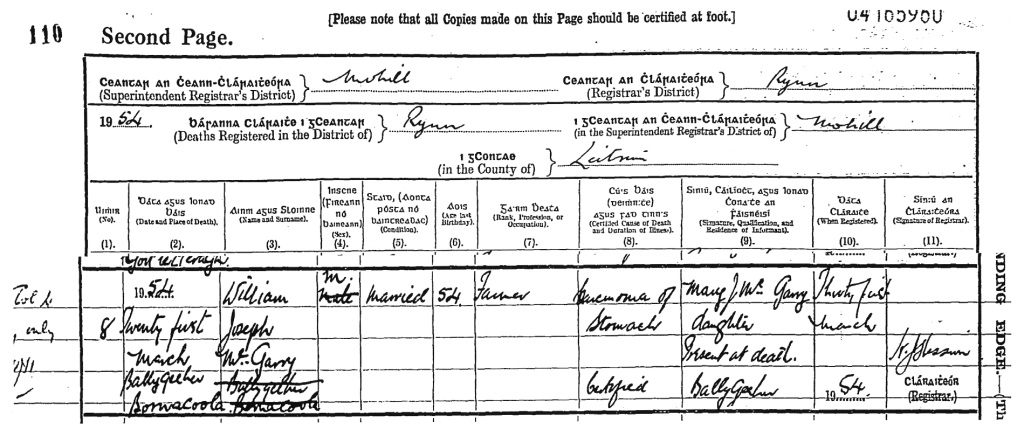 [Please note that all Copies made on this Page should be certified at foot.]
04165980
110 Second Page.
Ceantar an Ċeann-Ċláraiṫeóra } Mohill
(Superintendent Registrar's District)
Ceantar an Ċláraiṫeóra } Rynn
(Registrar's District)
1954. Báranna Cláraiṫe i gCeantar } Rynn
(Deaths Registered in the District of)
i gCeantar an Ċeann-Ċláraiṫeóra } Mohill
(in the Superintendent Registrar's District of)
i gContae } Leitrim
(in the County of)
Uimhir
(No.)
(1).
Dáta agus Ionad
Báis
(Date and Place of Death).
(2)
Ainm agus Sloinne
(Name and Surname).
(3)
Inscne
(Fireann
nó
baineann)
(Sex).
(4)
Staid, (Aonta
pósta nó
baintreabac)
(Condition).
(5)
Aois
(Age last
Birthday).
(6)
Gairm Beata
(Rank, Profession, or
Occupation).
(7)
Cúis Báis
(Certified Cause of Death
and Duration of Illness).
(8)
Síniú, Cáilíoct, agus Ionad
Comnaite an
Fáisnéisí
(Signature, Qualification, and
Residence of Informant).
(9)
Dáta
Cláraite
(When Registered).
(10)
Síniú an
Cláraiteóra
(Signature of Registrar).
(11)
1954 William M. Male Married 54 Farmer Carcinoma of Mary J. McGarry Thirty first
only 8 Twenty first Joseph Stomach daughter March
March McGarry Present at death.
Ballygeeher Ballygeeher Certified Ballygeeher 1954. Cláraiteóir
Bornacoola Bornacoola (Registrar.)
NDING EDGE.—(Th